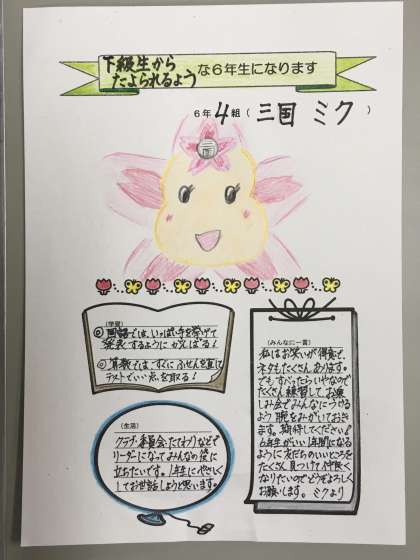 下級生から
たよられるよう な6年生になります
6年 4組( 三国 ミク )
三国
(学習)
◎国語では、いっぱい手を挙げて
発表するようにがんばる!
◎算数では、すぐに
テストでいい点を取る!
(生活)
クラブ・委員会・たてわりなどで
リーダーになってみんなの役に
立ちたいです。1年生にやさしく
してお世話しようと思います。
(みんなに一言)
私はお笑いが得意で、
ネタもたくさんあります。
でも、すべったらいやなので
たくさん練習して、お楽
しみ会でみんなにうける
よう腕をみがいておき
ます。期待してください!
6年生がいい1年間になる
ように友だちのいいところを
たくさん見つけて仲良く
なりたいのでどうぞよろしく
お願いします。 ミクより